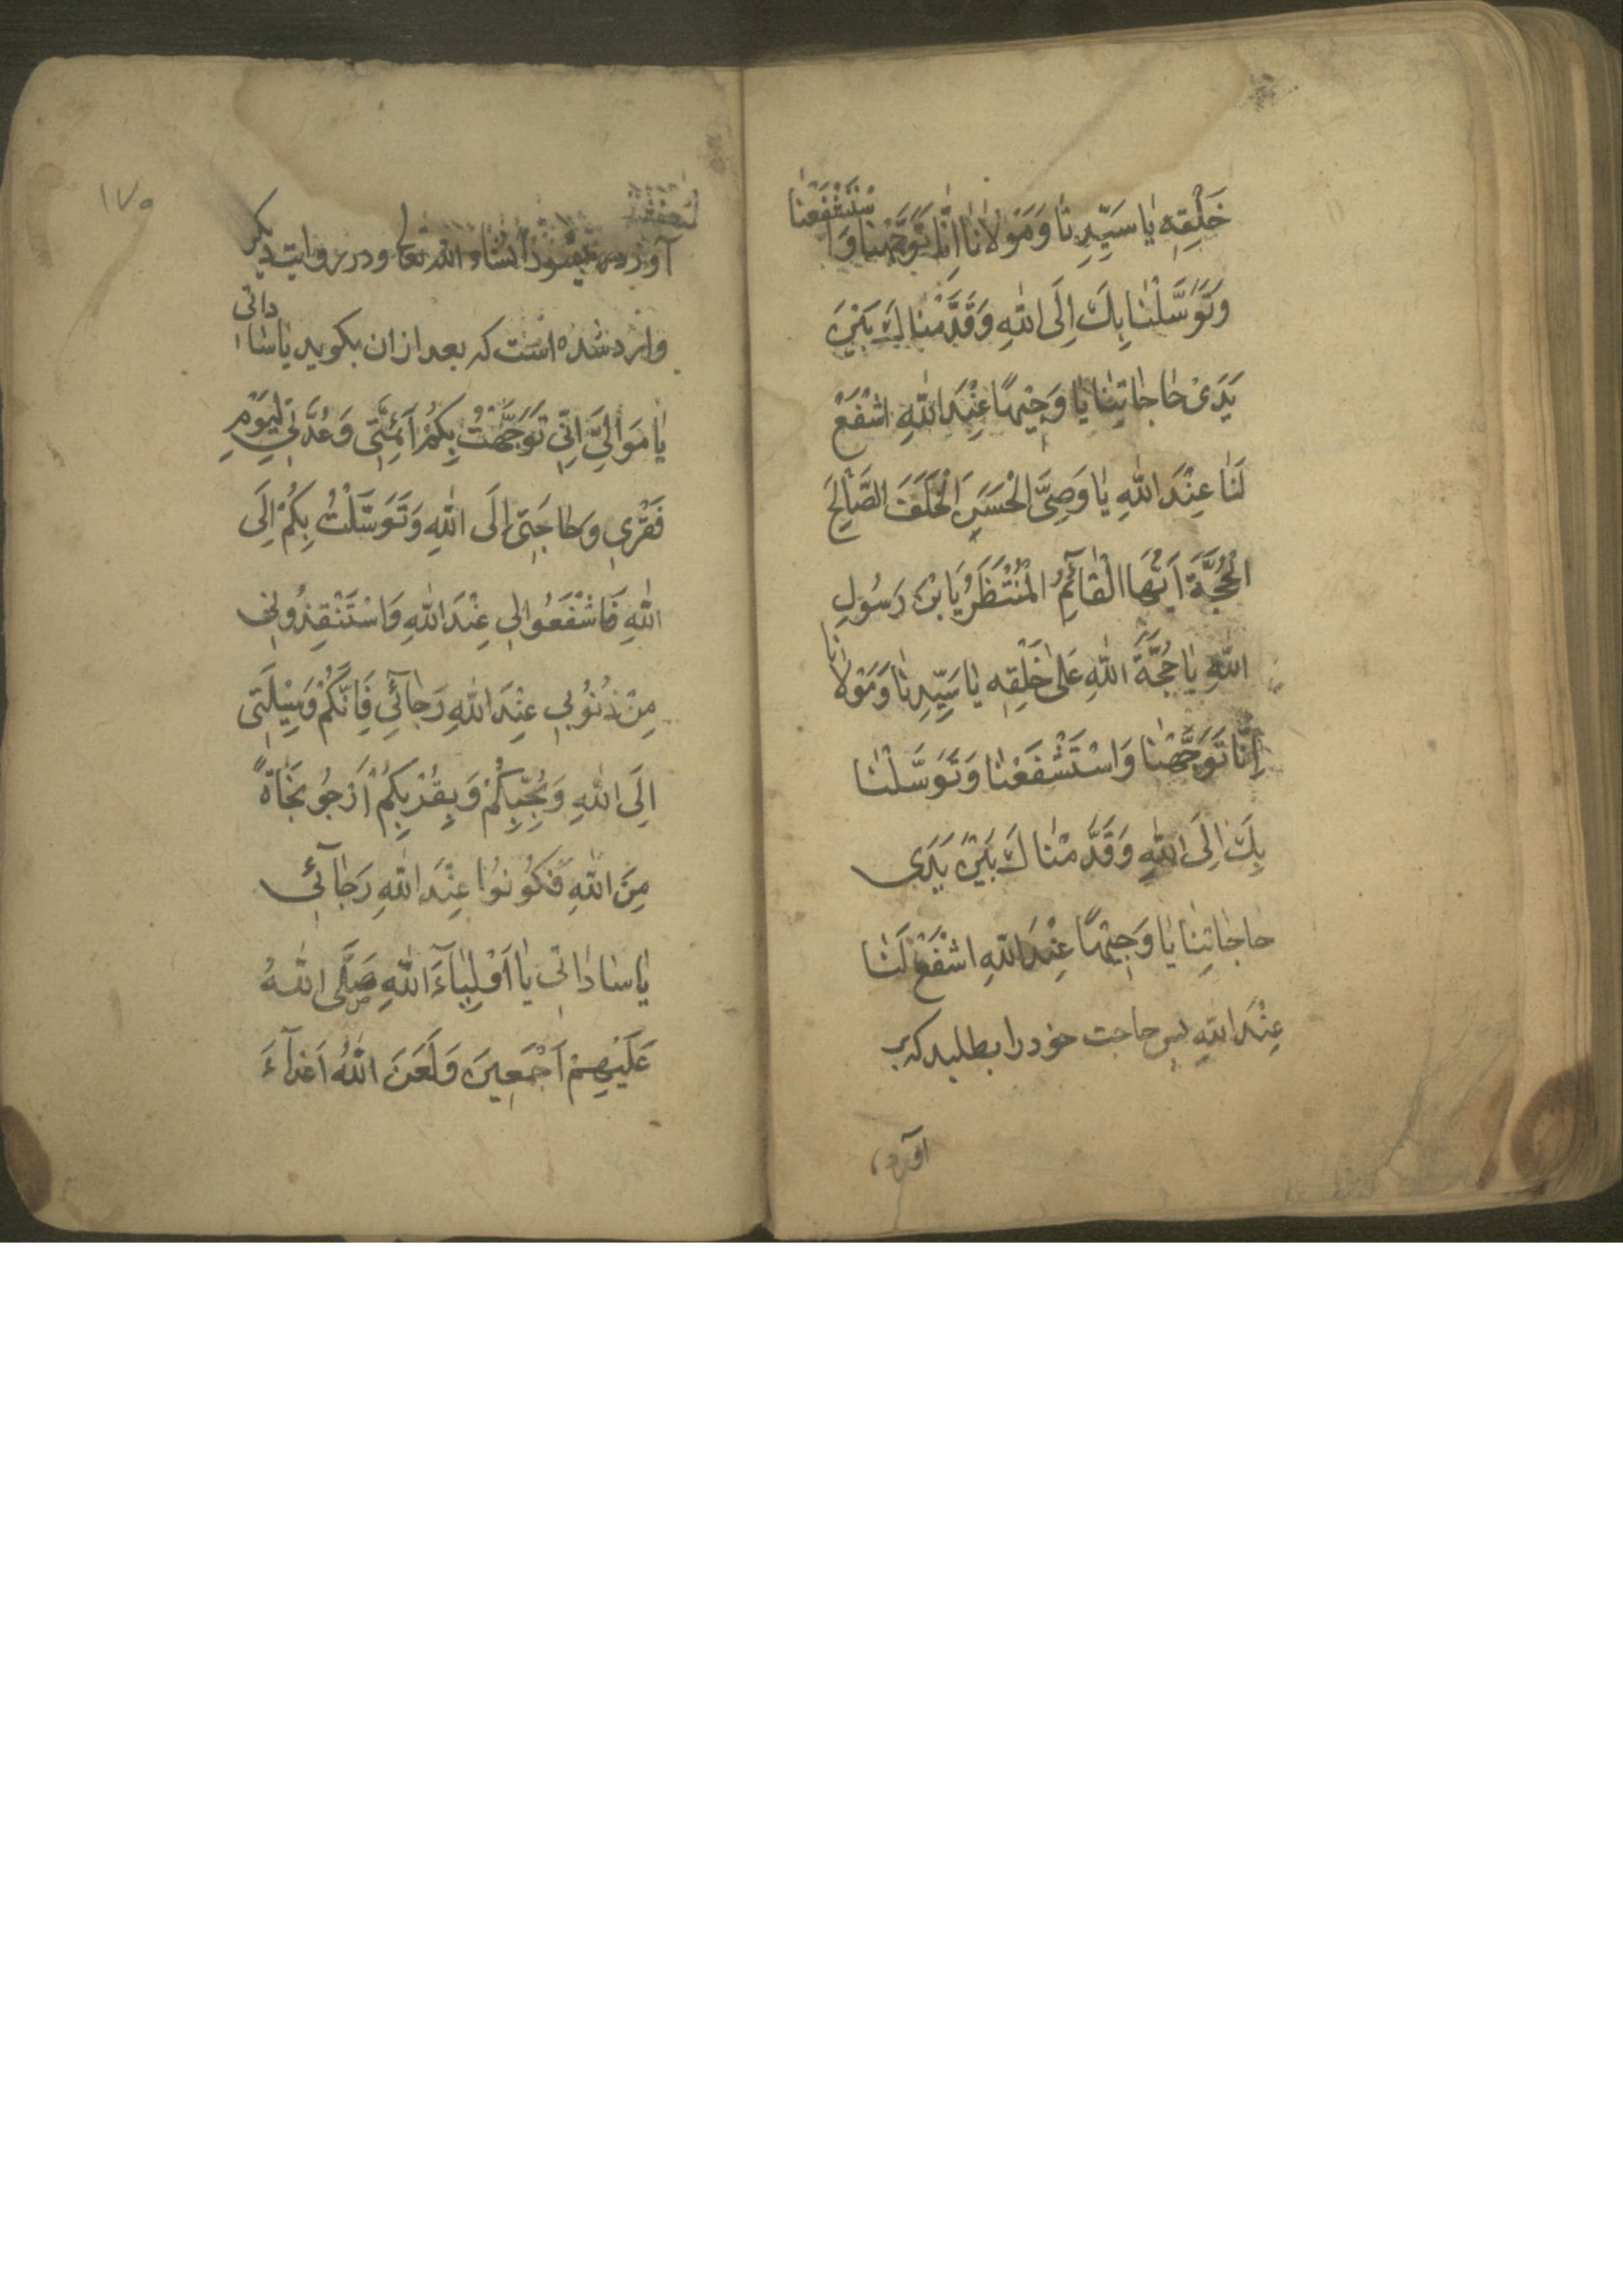 خَلْقِهِ يٰا سَيِّدِنٰا وَمَوْلٰانٰا اِنّٰا تَوَجَّهْنٰا وَاسْتَشْفَعْنٰا
وَتَوَسَّلْنٰا بِكَ اِلَى اللّٰهِ وَقَدَّمْنٰاكَ بَيْنَ
يَدَىْ حٰاجٰاتِنٰا يٰا وَجِيْهًا عِنْدَ اللّٰهِ اشْفَعْ
لَنٰا عِنْدَ اللّٰهِ يٰا وَصِىَّ الْحَسَنِ الْخَلَفَ الصّٰالِحَ
الْحُجَّةَ اَيُّهَا الْقٰآئِمُ الْمُنْتَظَرُ يَابْنَ رَسُولِ
اللّٰهِ يٰا حُجَّةَ اللّٰهِ عَلىٰ خَلْقِهِ يٰا سَيِّدِنٰا وَمَوْلٰانٰا
اِنّٰا تَوَجَّهْنٰا وَاسْتَشْفَعْنٰا وَتَوَسَّلْنٰا
بِكَ اِلَى اللّٰهِ وَقَدَّمْنٰاكَ بَيْنَ يَدَى
حٰاجٰاتِنٰا يٰا وَجِيْهًا عِنْدَ اللّٰهِ اشْفَعْ لَنٰا
عِنْدَ اللّٰهِ پس حاجت خود را بطلبد كه بر
آورده
١٧٥
آورده ميشود انشاء الله تعالى و در روايت ديكر
وارد شده است كه بعد از ان بكويد يٰا سٰادٰاتى
يٰا مَوٰالِىَّ اِنّى تَوَجَّهْتُ بِكُمْ اَئِمَّتى وَعُدَّتى لِيَوْمِ
فَقْرى وَحٰاجَتى اِلَى اللّٰهِ وَتَوَسَّلْتُ بِكُمْ اِلَى
اللّٰهِ فَاشْفَعُوا لى عِنْدَ اللّٰهِ وَاسْتَنْقِذُونى
مِنْ ذُنُوبى عِنْدَ اللّٰهِ رَجٰآئى فَاِنَّكُمْ وَسيْلَتى
اِلَى اللّٰهِ وَبِحُبِّكُمْ وَبِقُرْبِكُمْ اَرْجُو نَجٰاةً
مِنَ اللّٰهِ فَكُونُوا عِنْدَ اللّٰهِ رَجٰآئى
يٰا سٰادٰاتى يٰا اَوْلِيٰآءَ اللّٰهِ صَلَّى اللّٰهُ
عَلَيْهِمْ اَجْمَعِينَ وَلَعَنَ اللّٰهُ اَعْدٰآءَ